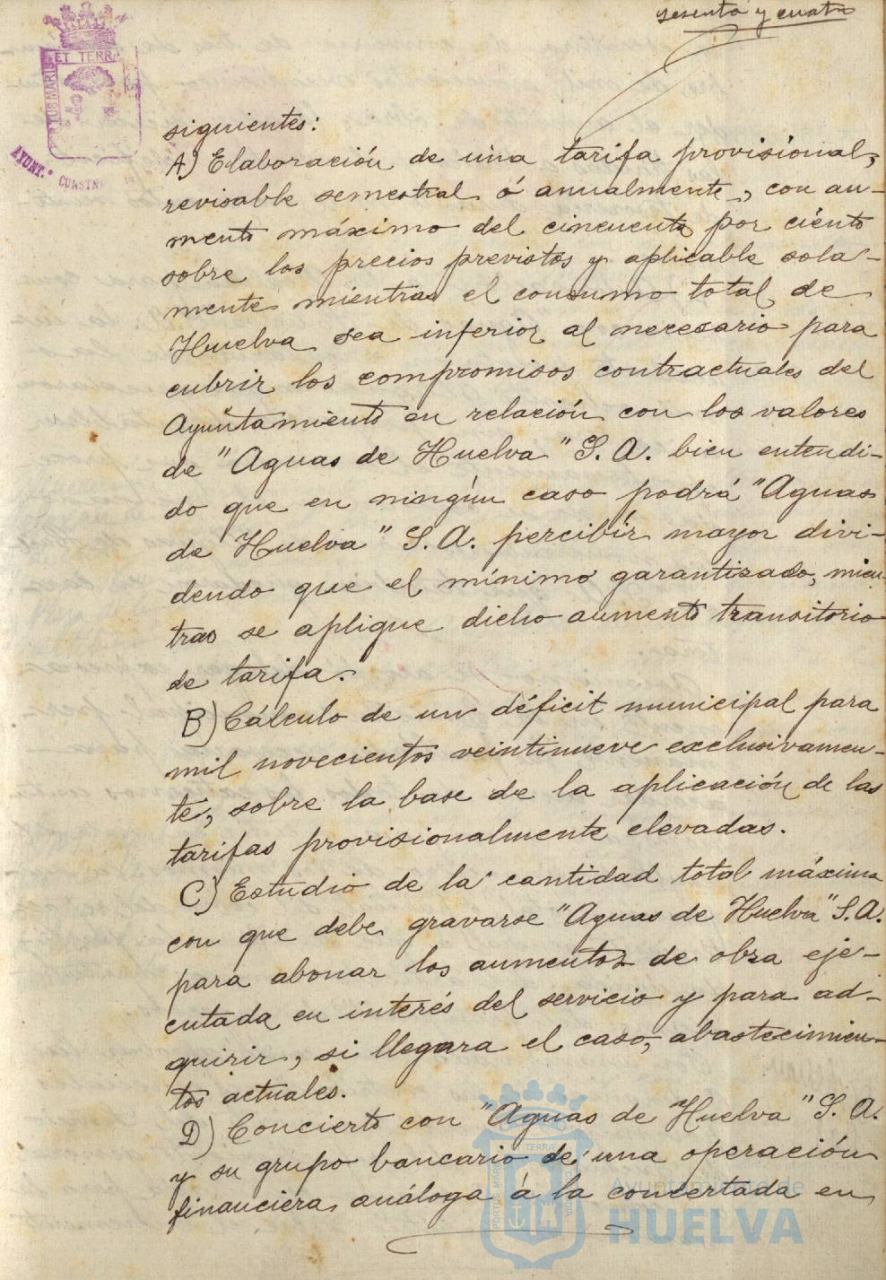 sesenta y cuatro
ET TERRA
AYUNT.º
siguientes:
A) Elaboración de una tarifa provisional,
revisable semestral ó anualmente, con au-
mento máximo del cincuenta por ciento
sobre los precios previstos y aplicable sola-
mente mientras el consumo total de
Huelva sea inferior al necesario para
cubrir los compromisos contractuales del
Ayuntamiento en relación con los valores
de "Aguas de Huelva" S. A. bien entendi-
do que en ningún caso podrá "Aguas
de Huelva" S. A. percibir mayor divi-
dendo que el mínimo garantizado, mien-
tras se aplique dicho aumento transitorio
de tarifa.
B) Cálculo de un déficit municipal para
mil novecientos veintinueve exclusivamen-
te, sobre la base de la aplicación de las
tarifas provisionalmente elevadas.
C) Estudio de la cantidad total máxima
con que debe gravarse "Aguas de Huelva" S. A.
para abonar los aumentos de obra eje-
cutada en interés del servicio y para ad-
quirir, si llegara el caso, abastecimien-
tos actuales.
D) Concierto con "Aguas de Huelva" S. A.
y su grupo bancario de una operación
financiera análoga á la concertada en
Ayuntamiento de
HUELVA